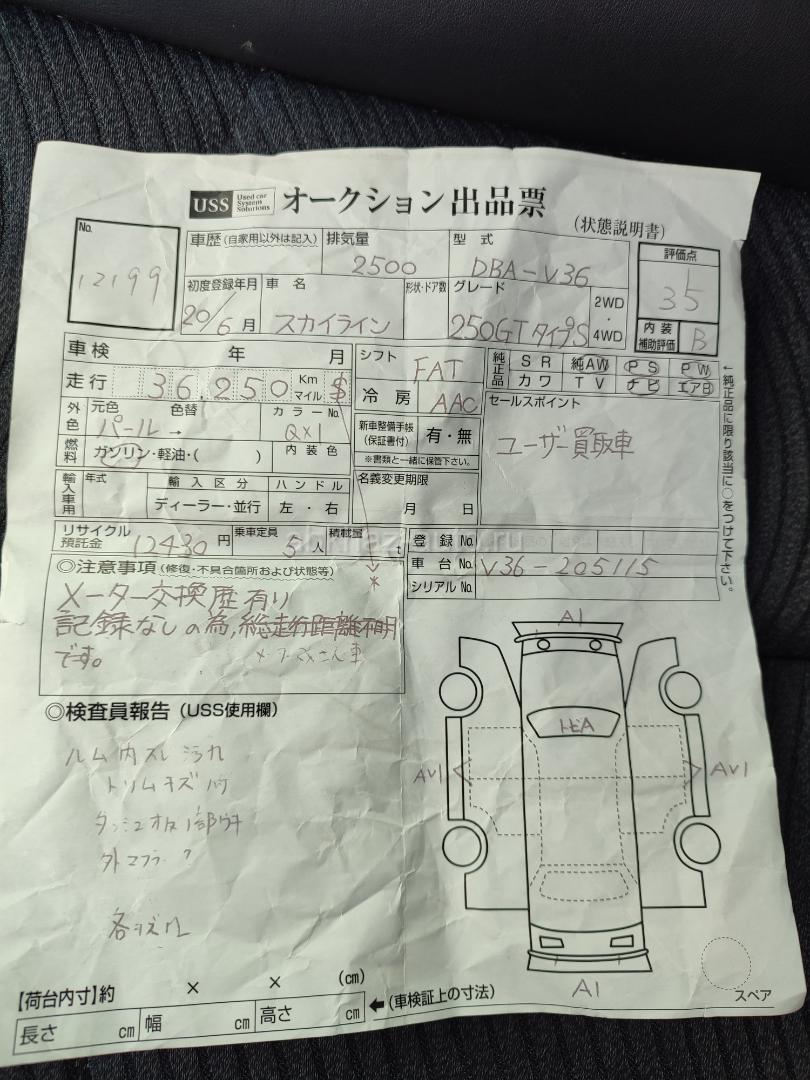 USS Used car System Solutions オークション出品票
(状態説明書)
No.
12199
車歴(自家用以外は記入) 排気量 2500 型式 DBA-V36
評価点 3.5
初度登録年月 20/6月 車名 スカイライン 形状・ドア数 グレード 250GTタイプS 2WD・4WD
内装補助評価 B
車検 年 月
シフト FAT
純正品 SR 純AW PS PW
カワ TV ナビ エアB
走行 36,250 Km マイル $
冷房 AAC
外色 元色 パール → 色替 カラーNo. QX1
新車整備手帳(保証書付) 有・無
※書類と一緒に保管下さい。
セールスポイント
ユーザー買取車
←純正品に限り該当に○をつけて下さい。
燃料 ガソリン・軽油・( ) 内装色
名義変更期限
月 日
輸入車用 年式 輸入区分 ハンドル
ディーラー・並行 左・右
リサイクル預託金 12430円 乗車定員 5人 積載量 t
登録No.
車台No. V36-205115
シリアルNo.
◎注意事項(修復・不具合箇所および状態等)
*
メーター交換歴有り
記録なしの為,総走行距離不明
です。
◎検査員報告(USS使用欄)
ルーム内スレ 汚れ
トリムキズ
A1
トビA
AV1 AV1
A1
スペア
【荷台内寸】約 × × (cm) ←(車検証上の寸法)
長さ cm 幅 cm 高さ cm